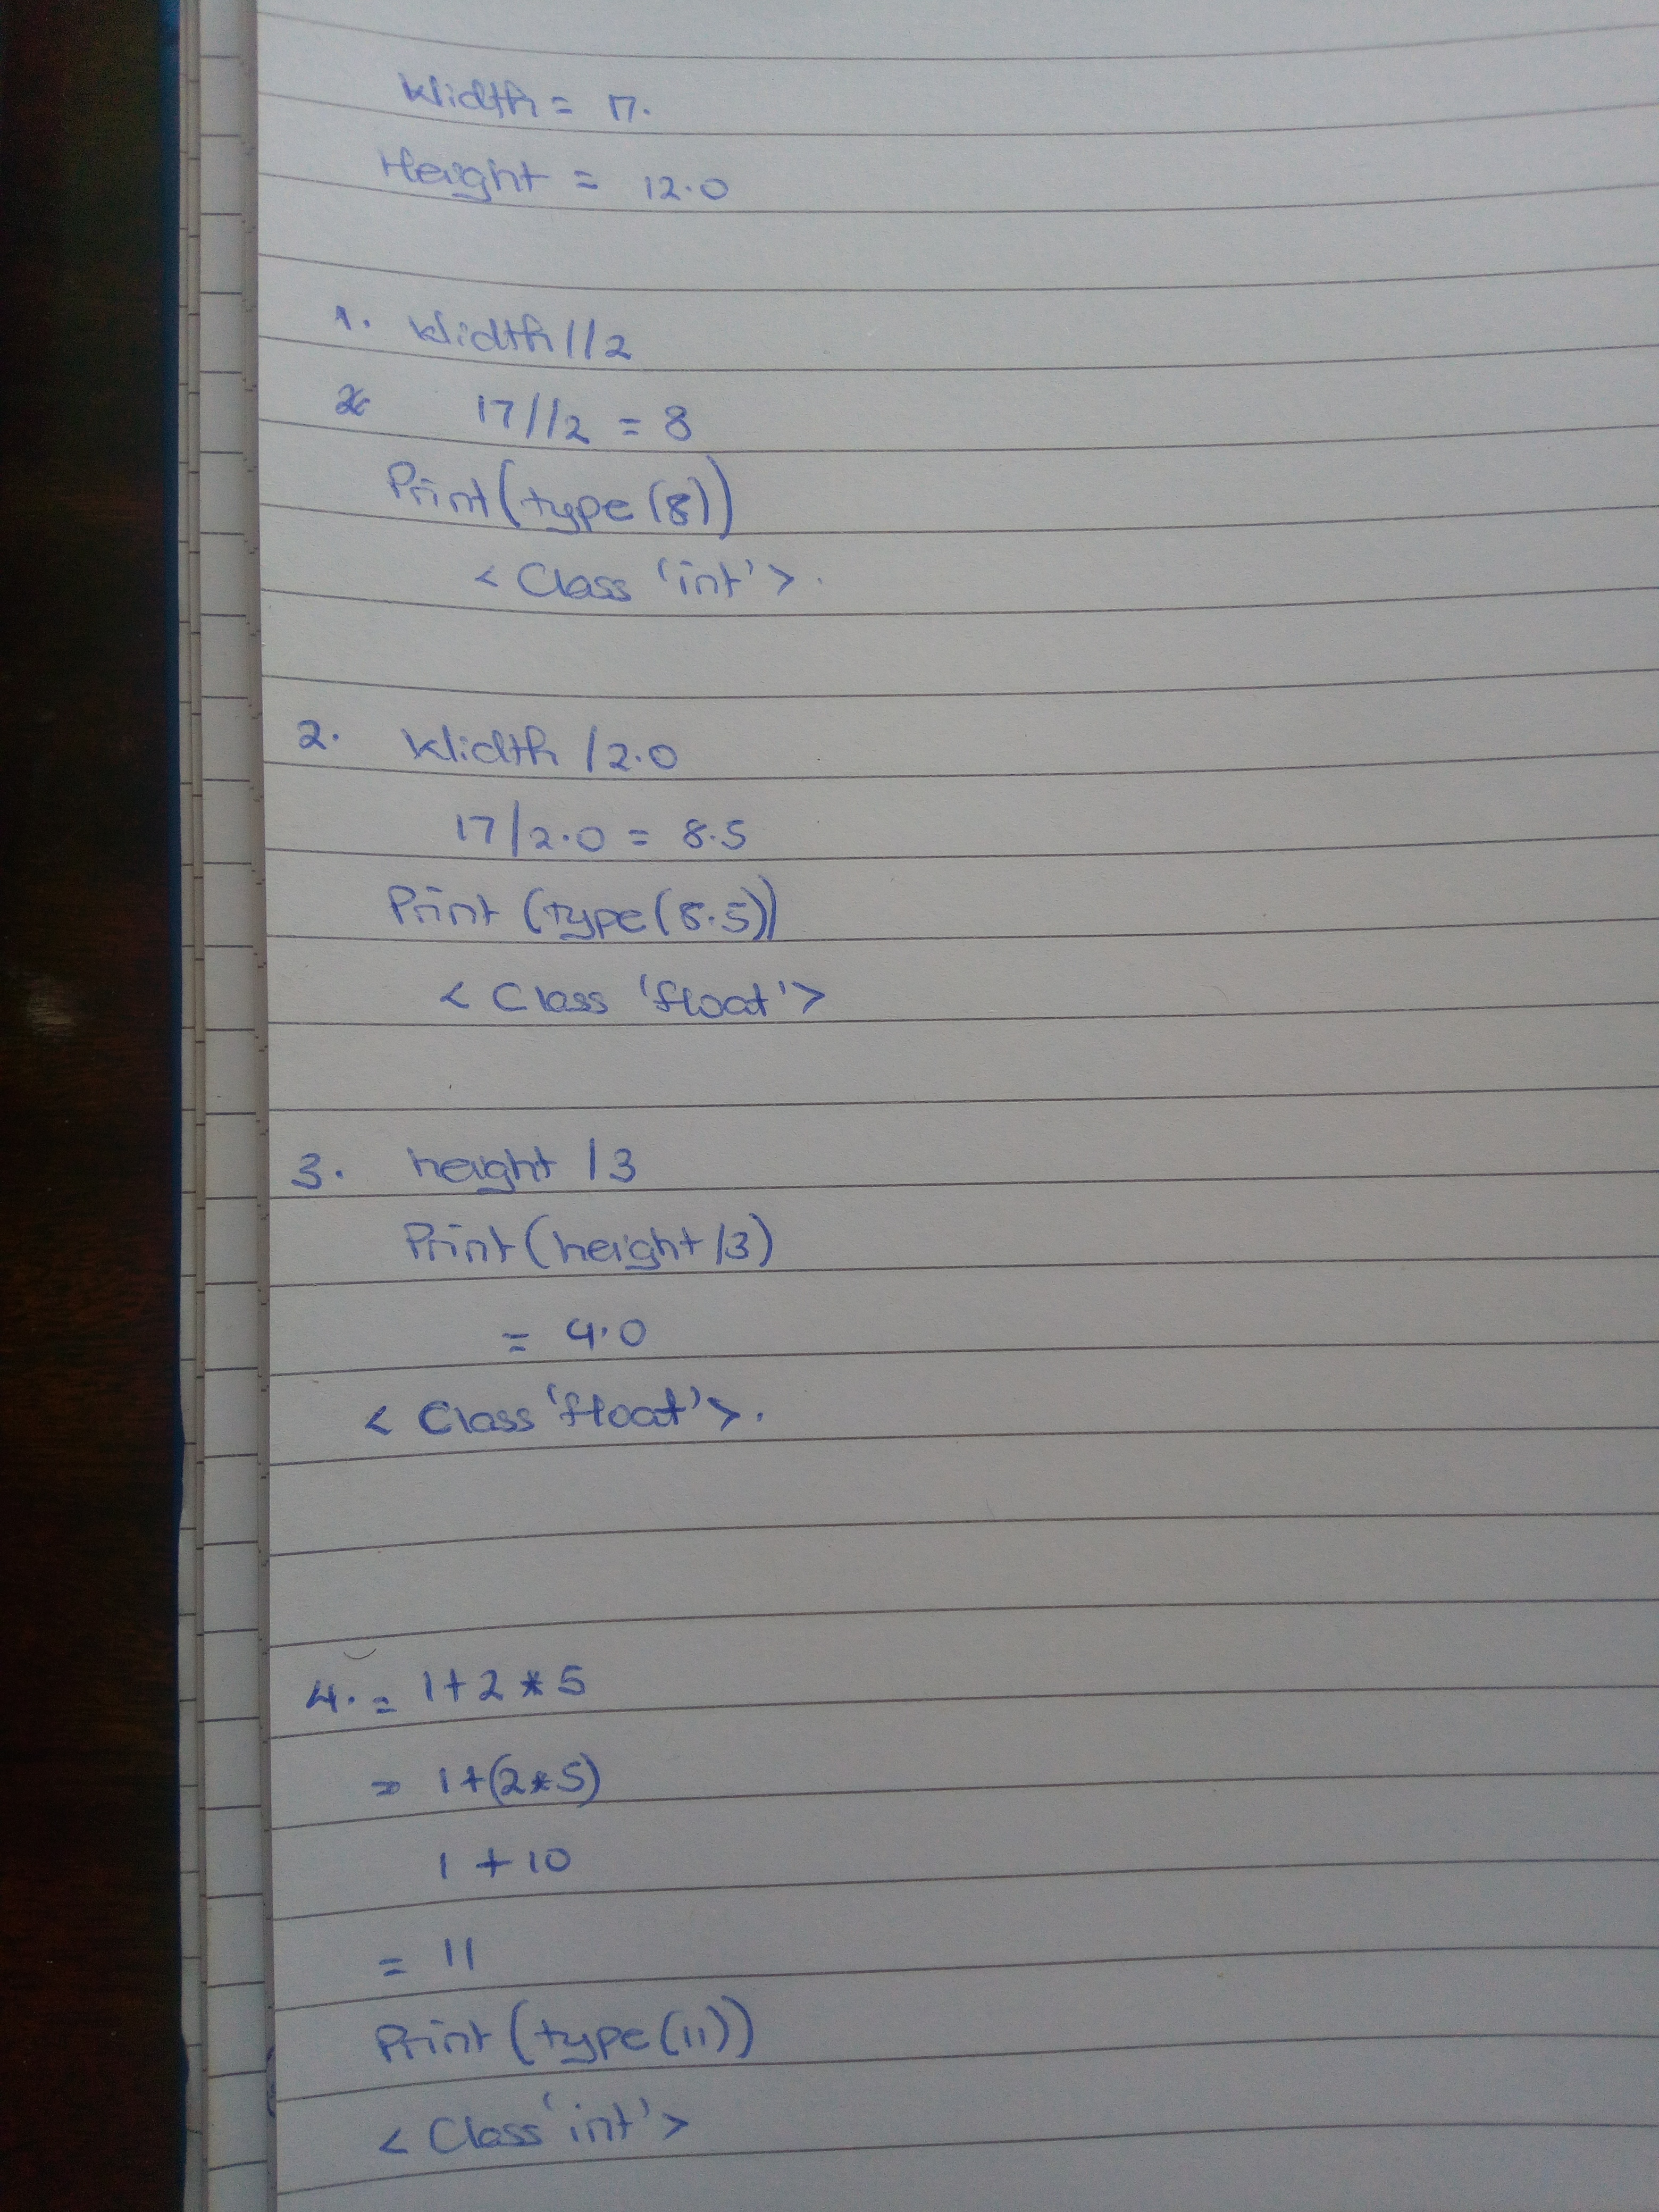 Width = 17.
Height = 12.0
1. Width//2
17//2 = 8
Print(type(8))
<Class 'int'>.
2. Width /2.0
17/2.0 = 8.5
Print (type(8.5))
<Class 'float'>
3. height /3
Print(height/3)
= 4.0
<Class 'float'>.
4. = 1+2*5
= 1+(2*5)
1 + 10
= 11
Print (type(11))
<Class 'int'>